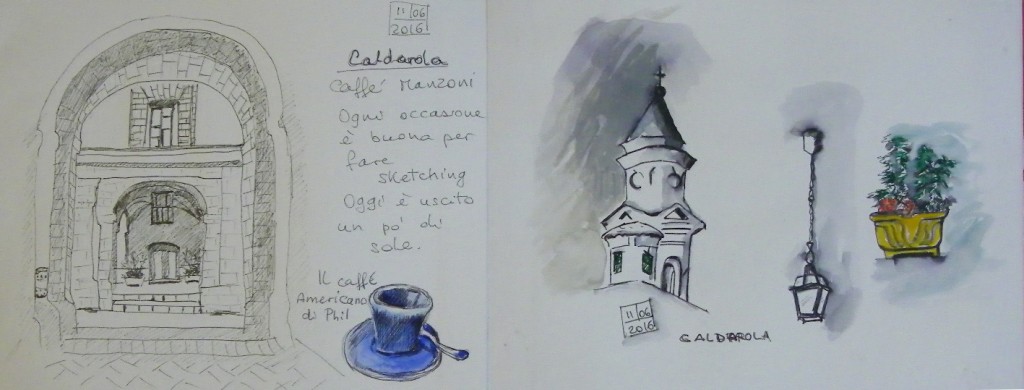 11 06
2016
Caldarola
Caffé Manzoni
Ogni occasione
è buona per
fare
sketching
Oggi è uscito
un pò di
sole.
Il caffé
Americano
di Phil
11 06
2016
CALDAROLA